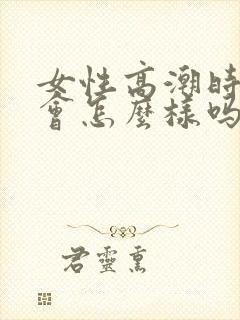 女性高潮時
會怎麼樣吗
君靈熏